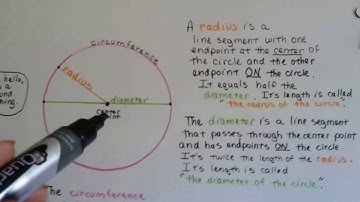 circumference
radius
diameter
center
point
hello,
is a
The circumference
A radius is a
line segment with one
endpoint at the center of
the circle and the other
endpoint ON the circle.
It equals half the
diameter. It's length is called
"the radius of the circle."
The diameter is a line segment
that passes through the center point
and has endpoints ON the circle.
It's twice the length of the radius.
It's length is called
"the diameter of the circle".